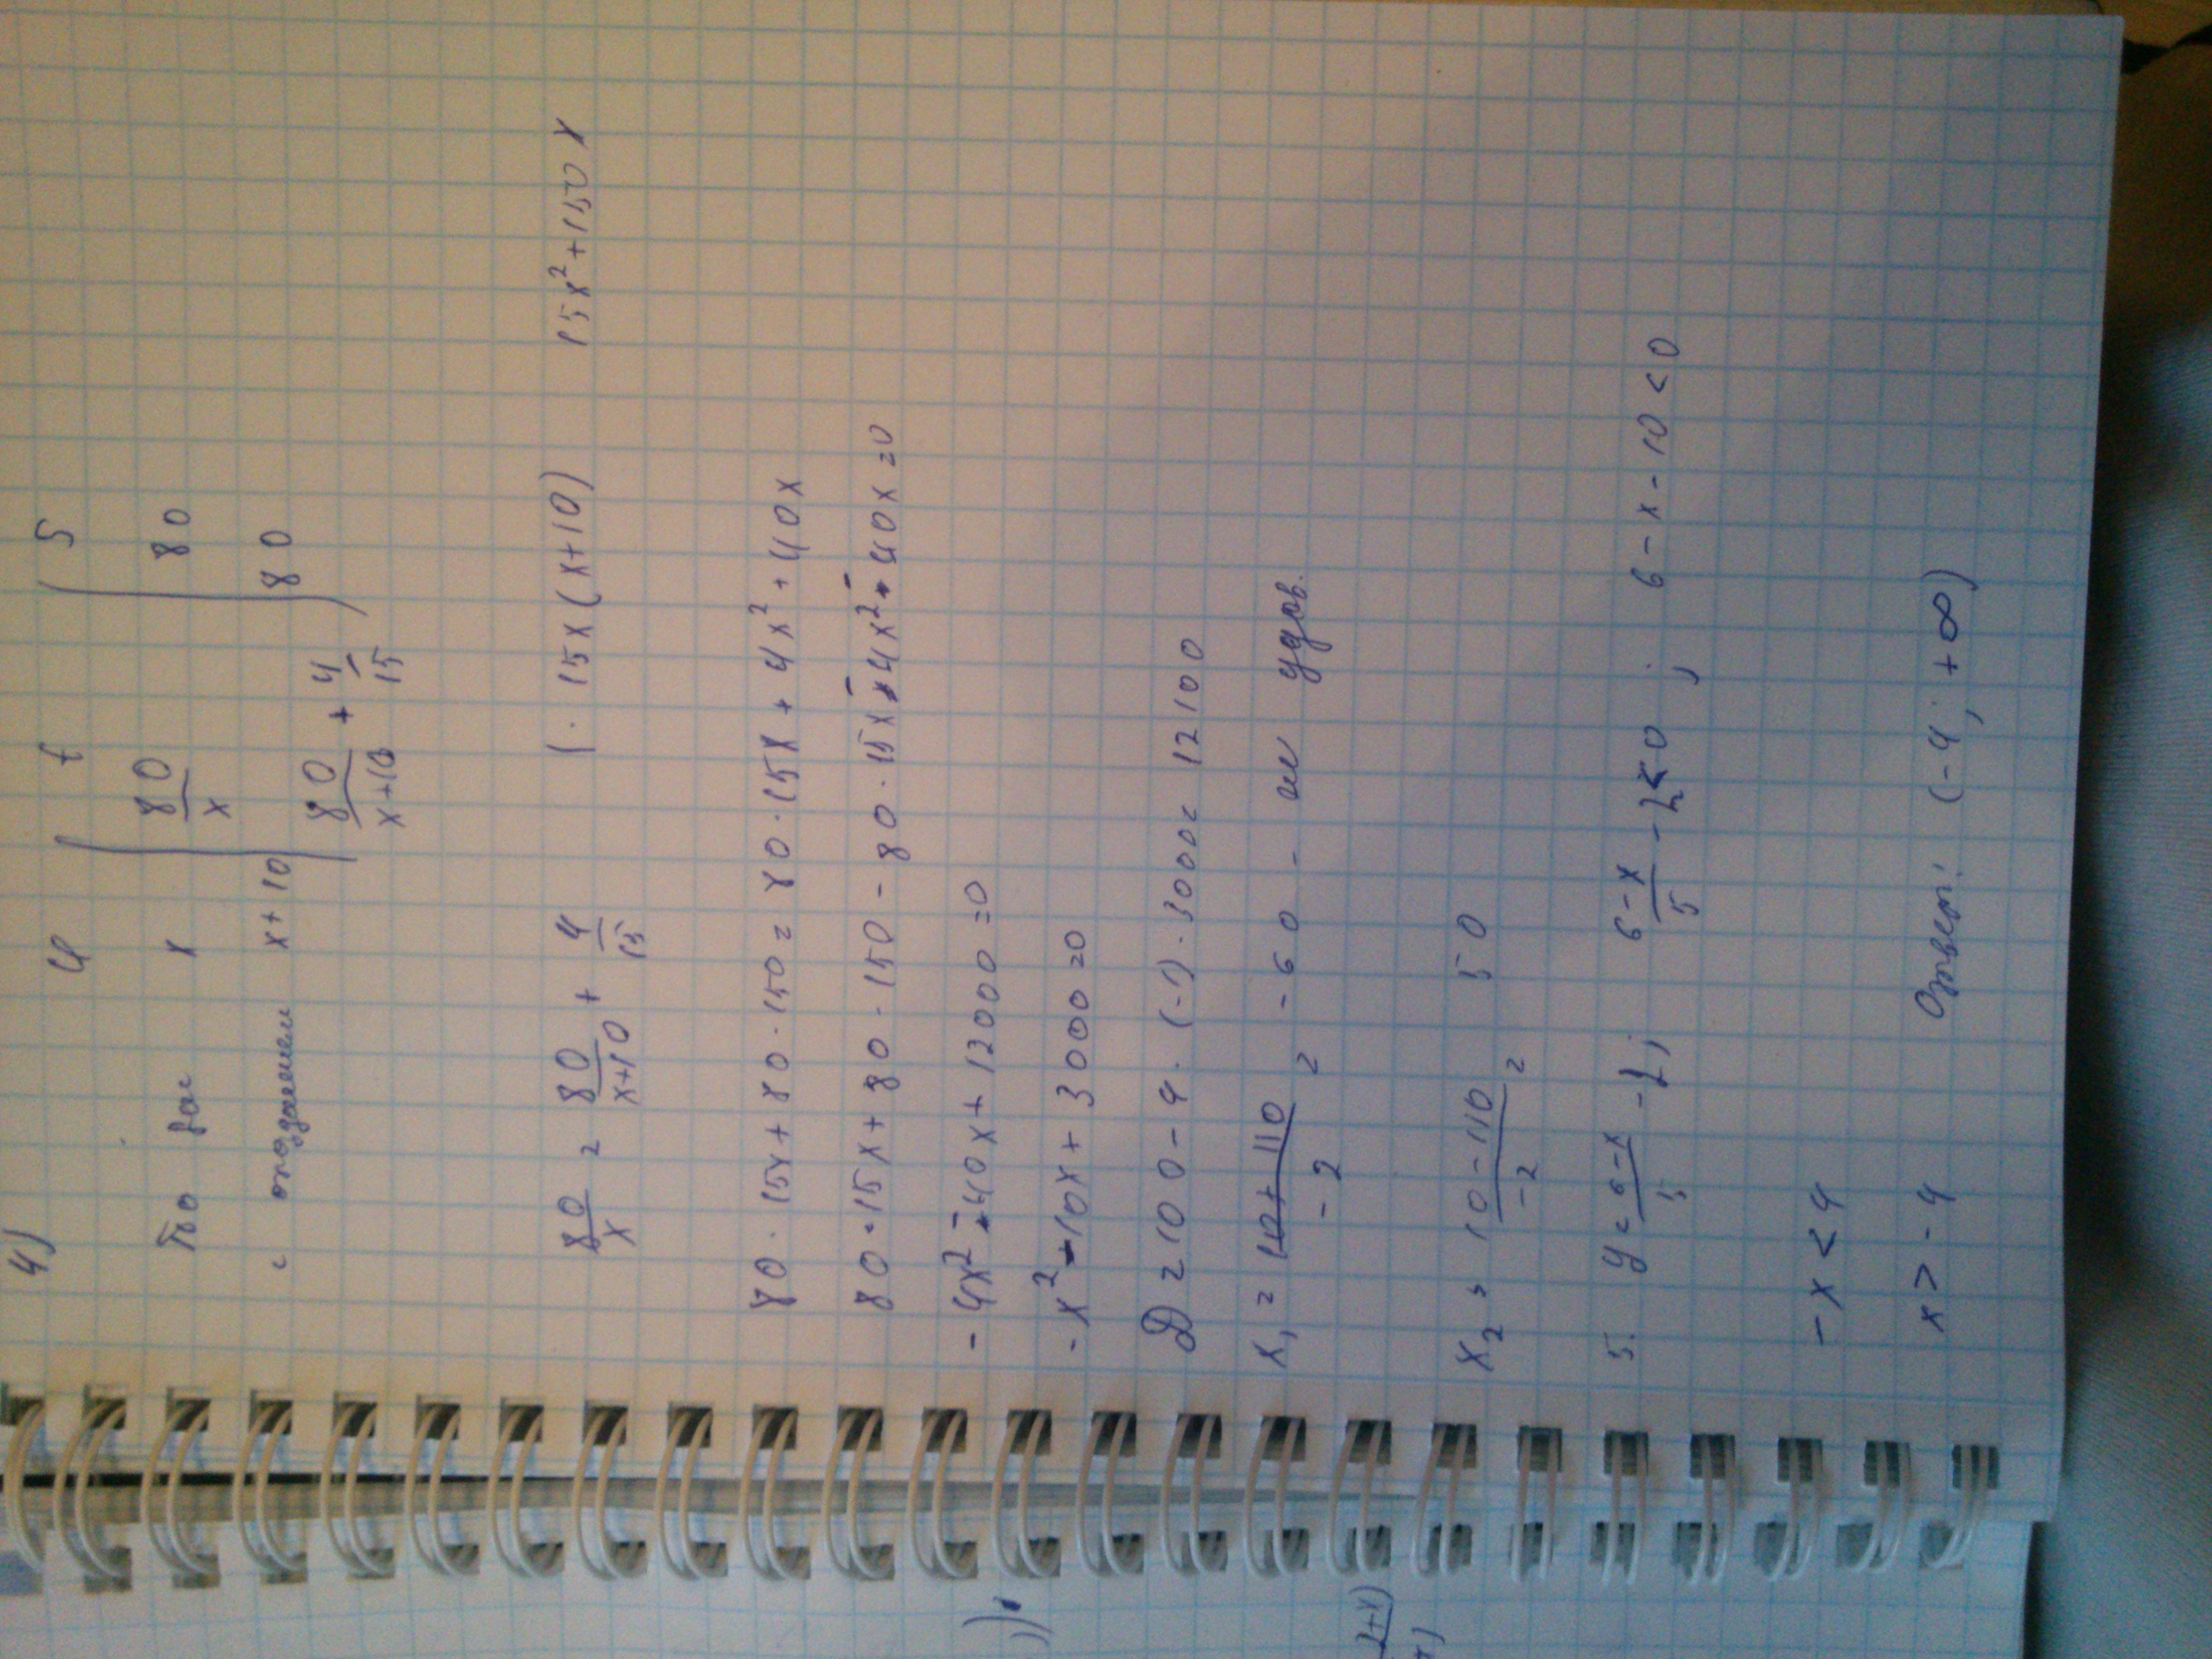 4) υ t S
По рас x 80/x 80
с опозданием x+10 80/(x+10) + 4/15 80
80/x = 80/(x+10) + 4/15 | · 15x(x+10) 15x²+150x
80·15x+80·150=80·15x+4x²+40x
80·15x+80·150-80·15x-4x²-40x=0
-4x²-40x+12000=0
-x²-10x+3000=0
D=100-4·(-1)·3000=12100
x₁=(10+110)/-2 = -60 - не удов.
x₂=(10-110)/-2 = 50
5. y=(6-x)/5 -2; (6-x)/5 -2<0; 6-x-10<0
-x<4
x>-4 Ответ: (-4; +∞)